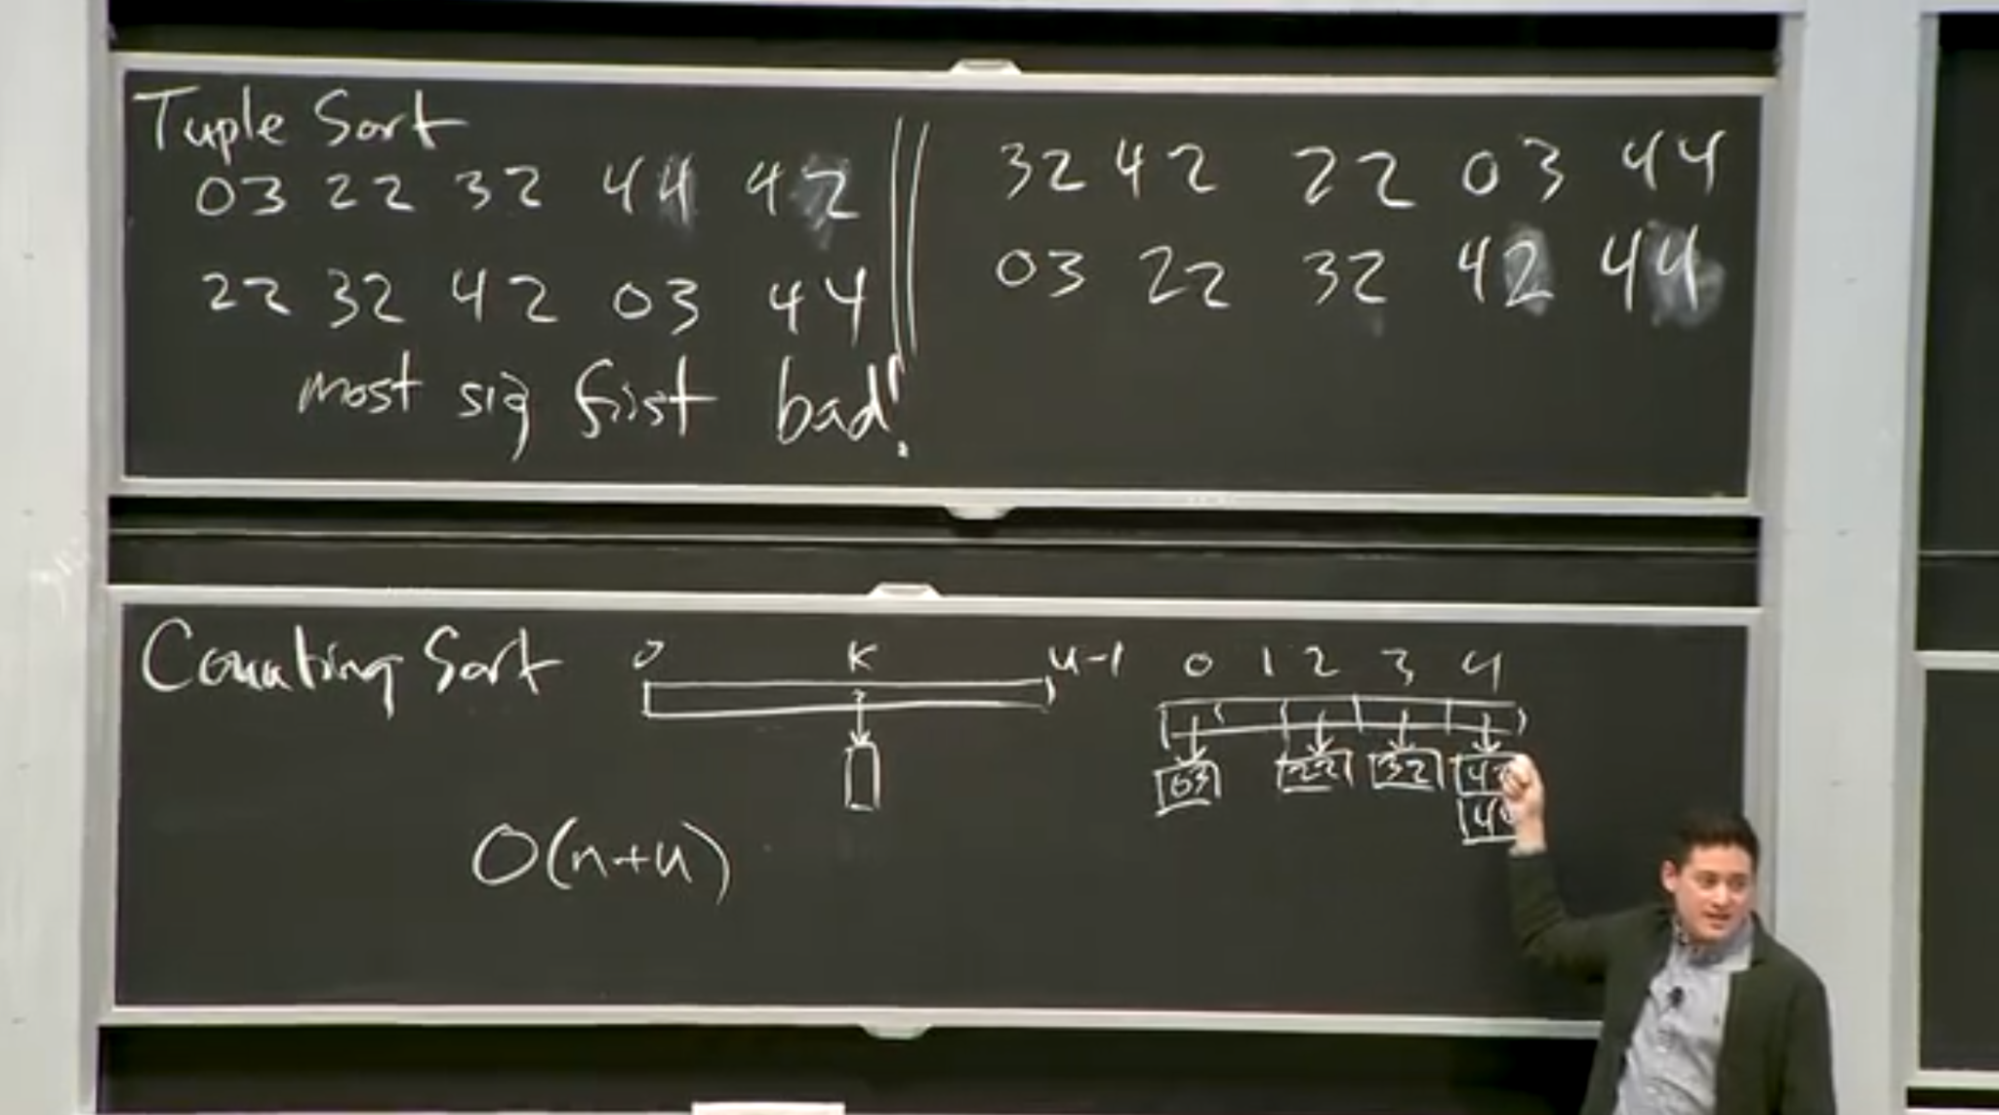 Tuple Sort
03 22 32 44 42
22 32 42 03 44
most sig first bad!
32 42 22 03 44
03 22 32 42 44
Counting Sort
0 K u-1
O(n+u)
0 1 2 3 4
03 22 32